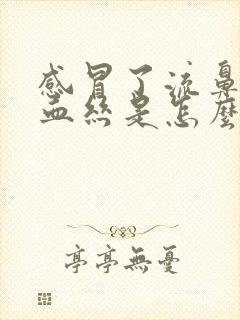 感冒了流鼻
血絲是怎麼
亭亭無憂